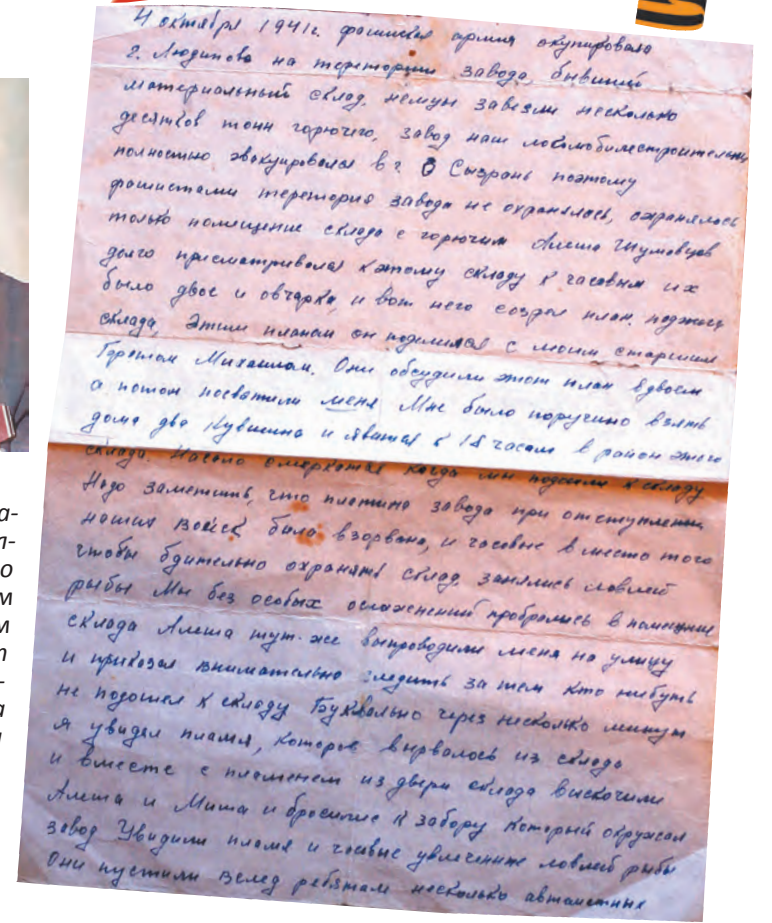 4 октября 1941г. фашиская армия окупировала
г. Людиново на теретории завода, бывший
материальный склад, немцы завезли несколько
десятков тонн горючего, завод наш локомобилестроительный
полностью эвокуировался в г. Сызрань поэтому
фашистами теретория завода не охранялась, охранялось
только помещение склада с горючим Алеша Шумавцов
долго присматривался к этому складу к часовым их
было двое и овчарка, и вот него созрел план. поджечь
склада, Этим планом он поделился с моим старшим
Братом Михаилом. Они обсудили этот план вдвоем
а потом посвятили меня Мне было поручино взять
дома два кувшина и явится к 18 часам в район этого
склада. Начало смеркатся когда мы подошли к складу
Надо заметить, что плотина завода при отступлении
наших войск была взорвана, и часовые в место того
чтобы бдительно охранять склад занялись ловлей
рыбы Мы без особых осложнений пробрались в помещение
склада Алеша тут-же выпроводили меня на улицу
и приказал внимательно следить за тем кто нибуть
не подошел к складу Буквально через несколько минут
я увидел пламя, которое вырвалось из склада
и вместе с пламенем из двери склада выскочили
Алеша и Миша и бросились к забору который окружал
завод Увидили пламя и часовые увлеченные ловлей рыбы
Они пустили вслед ребятам несколько автоматных